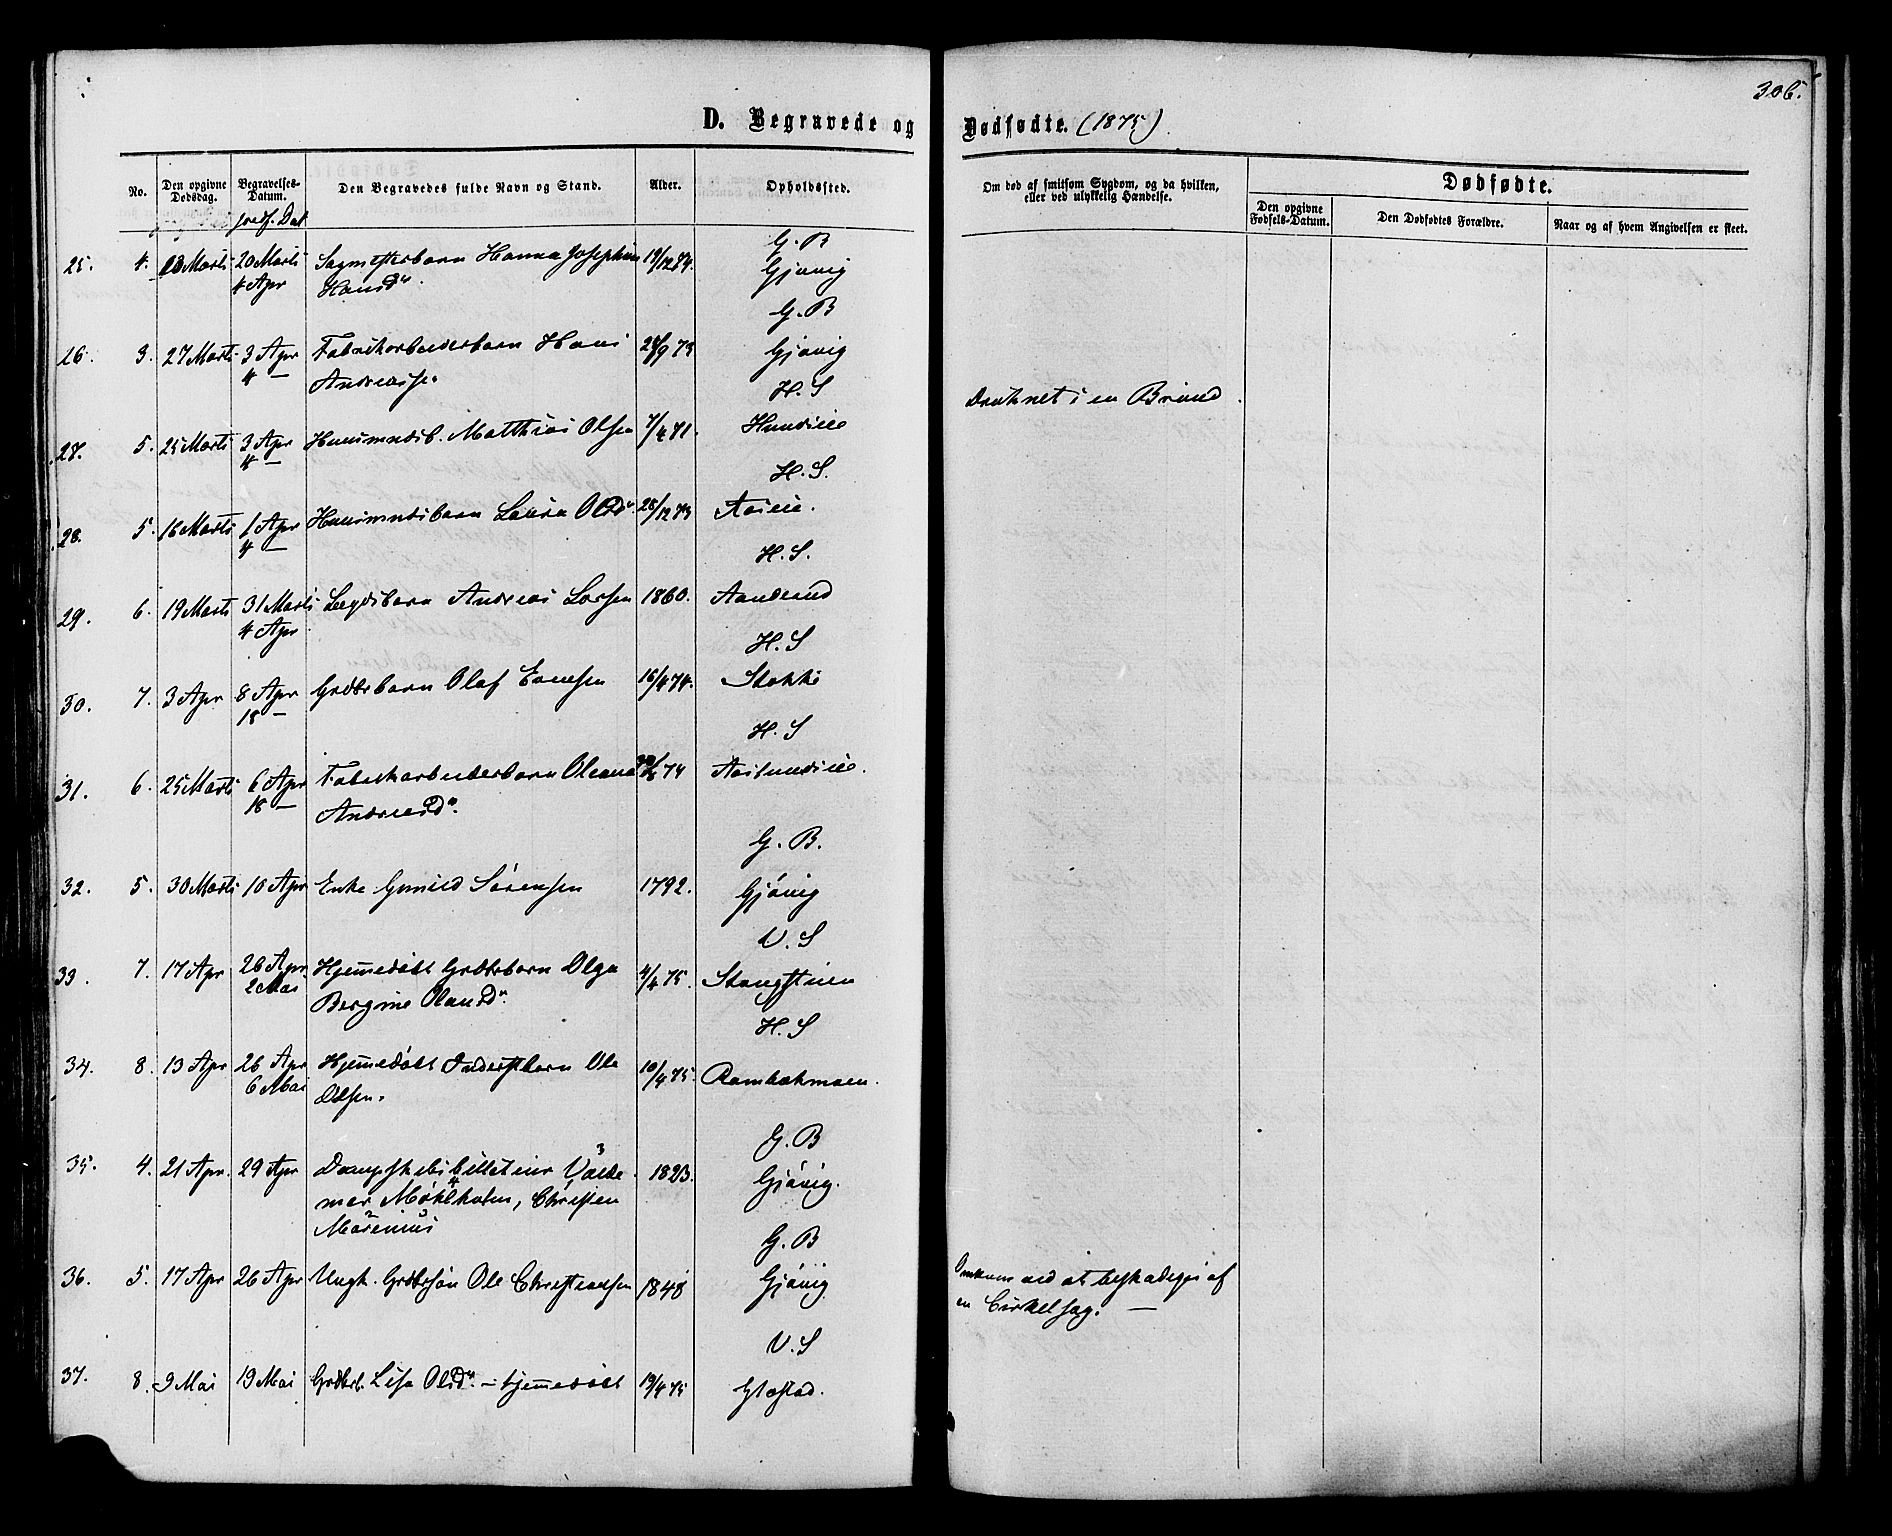 306.
D. Begravede og Dødfødte. (1875)
No. Den opgivne Dødsdag. Begravelses-Datum. Den Begravedes fulde Navn og Stand. Alder. Opholdssted. Om død af smitsom Sygdom, og da hvilken, eller ved ulykkelig Hændelse. Dødfødte.
Den opgivne Fødsels-Datum. Den Dødfødtes Forældre. Naar og af hvem Angivelsen er skeet.
Jordf. Dat
G. B
25. 4. 13 Marts 20 Marts Sagmesterbarn Hanna Josephine 19/12 74. Gjøvig
4 Apr Hansdr
G. B
26. 3. 27 Marts 3 Apr Fabrikarbeiderbarn Hans 28/9 73 Gjøvig
4 — Andreass.
H. S
27. 5. 25 Marts 3 Apr Huusmndsb. Matthias Olsen 7/4 71. Hundseie Druknet i en Brønd.
4 —
H. S.
28. 5. 16 Marts 1 Apr Huusmndsbarn Laura Olsdr 28/12 73 Aaseie.
4 —
H. S.
29. 6. 19 Marts 31 Marts Lægdsbarn Andreas Larsen 1860.
4 Apr
H. S
30. 7. 3 Apr 8 Apr Grdbrbarn Olaf Evensen 16/4 74. Stokke
18 —
H. S
31. 6. 25 Marts 6 Apr Fabrikarbeiderbarn Oleana 74 Aaslundseie.
18 — Andreasdr.
G. B.
32. 5. 30 Marts 10 Apr Enke Gunild Sørensen 1792. Gjøvig
V. S
33. 7. 17 Apr 26 Apr Hjemmedøbt Grdbrbarn Olga 4/4 75. Stangstuen
2 Mai Bergine Olausdr.
H. S
34. 8. 13 Apr 26 Apr Hjemmedøbt Inderstbarn Ole 10/4 75.
6 Mai Olsen.
G. B
35. 4. 21 Apr. 29 Apr Dampskibsbilletteur Valde 1823. Gjøvig.
mar Møhlholm, Christen
Marenius
G. B
36. 5. 17 Apr 26 Apr Ungk. Grdbrsøn Ole Christiansen 1848 Gjøvig Omkom ved at beskadiges af
en Cirkelsag. —
V. S
37. 8. 9 Mai 19 Mai Grdbrb. Lisa Olsdr. — hjemmedøbt 19/4 75 Glæstad.